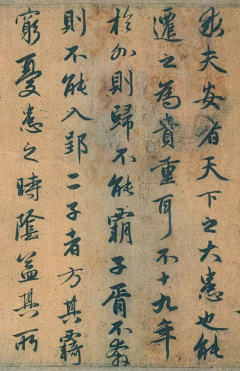 求夫安者天下之大患也能
遷之為貴重耳不十九年
於外則歸不能霸子胥不奔
則不能入郢二子者方其羇
窮憂患之時陰益其所